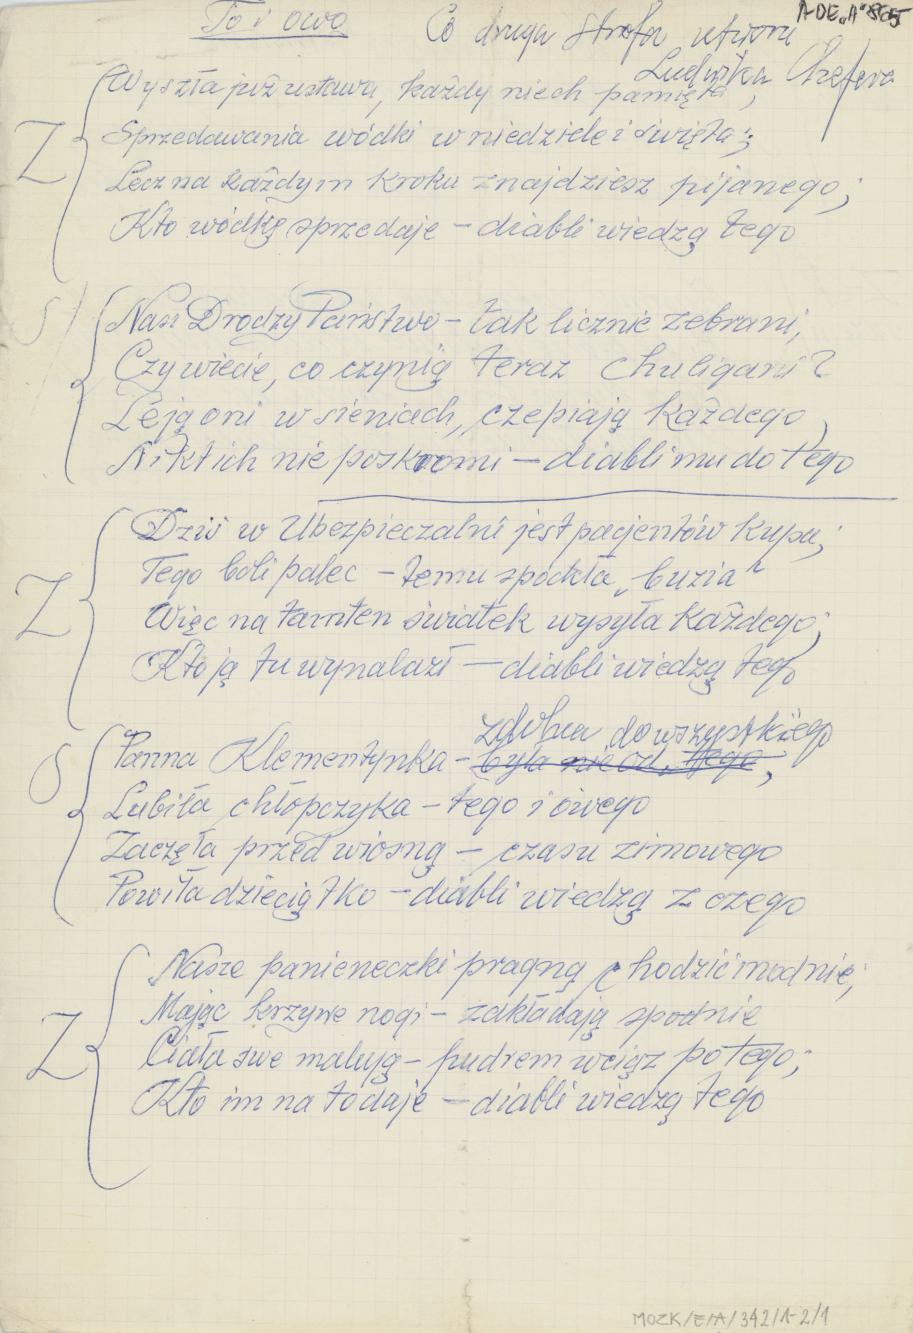 To i owo
Co druga strofa utworu
Ludwika
A-DE„A”865
Wyszła już ustawa, każdy niech pamięta,
Z
Sprzedawania wódki w niedzielę i święta;
Lecz na każdym kroku znajdziesz pijanego;
Kto wódkę sprzedaje – diabli wiedzą tego
S
Nasi Drodzy Państwo – tak licznie zebrani,
Czy wiecie, co czynią teraz chuligani?
Leją oni w sieniach, czepiają każdego,
Nikt ich nie poskromi – diabli mu do tego
Dziś w Ubezpieczalni jest pacjentów kupa;
Tego boli palec – temu spuchła „buzia”
Z
Więc na tamten światek wysyła każdego;
Kto ją tu wynalazł – diabli wiedzą tego
zdolna do wszystkiego
Panna Klementynka – była nie od tego,
S
Lubiła chłopczyka – tego i owego
Zaczęła przed wiosną – czasu zimowego
Powiła dzieciątko – diabli wiedzą z czego
Nasze panieneczki pragną chodzić modnie,
Mając krzywe nogi – zakładają spodnie
Z
Ciała swe malują – pudrem wciąż po tego;
Kto im na to daje – diabli wiedzą tego
MOZK/E/A/342/1-2/1